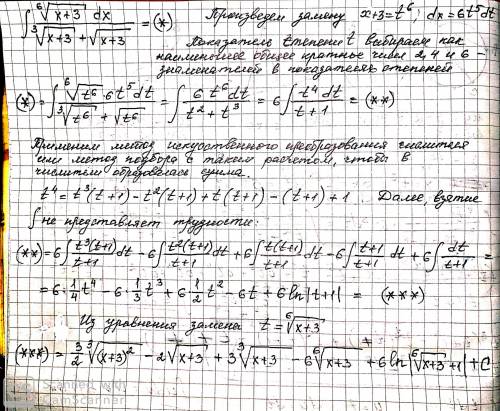 ∫ ⁶√(x+3) dx / (³√(x+3) + √(x+3)) = (*) Произведем замену x+3=t⁶; dx=6t⁵dt
Показатель степени t выбираем как
наименьшее общее кратное чисел 2, 4 и 6 –
знаменателей в показателях степеней
(*) = ∫ ⁶√t⁶ · 6t⁵dt / (³√t⁶ + √t⁶) = ∫ 6t⁶dt / (t² + t³) = 6∫ t⁴dt / (t+1) = (**)
Применим метод искусственного преобразования числителя
или метод подбора с таким расчетом, чтобы в
числителе образовалась сумма.
t⁴ = t³(t+1) - t²(t+1) + t(t+1) - (t+1) + 1. Далее, взятие
∫ не представляет трудности:
(**) = 6∫ t³(t+1)/(t+1) dt - 6∫ t²(t+1)/(t+1) dt + 6∫ t(t+1)/(t+1) dt - 6∫ (t+1)/(t+1) dt + 6∫ dt/(t+1) =
= 6·1/4 t⁴ - 6·1/3 t³ + 6·1/2 t² - 6t + 6ln|t+1| = (***)
Из уравнения замены t = ⁶√(x+3)
(***) = 3/2 ³√(x+3)² - 2√(x+3) + 3 ³√(x+3) - 6 ⁶√(x+3) + 6ln|⁶√(x+3) + 1| + C
Scanned with
CamScanner